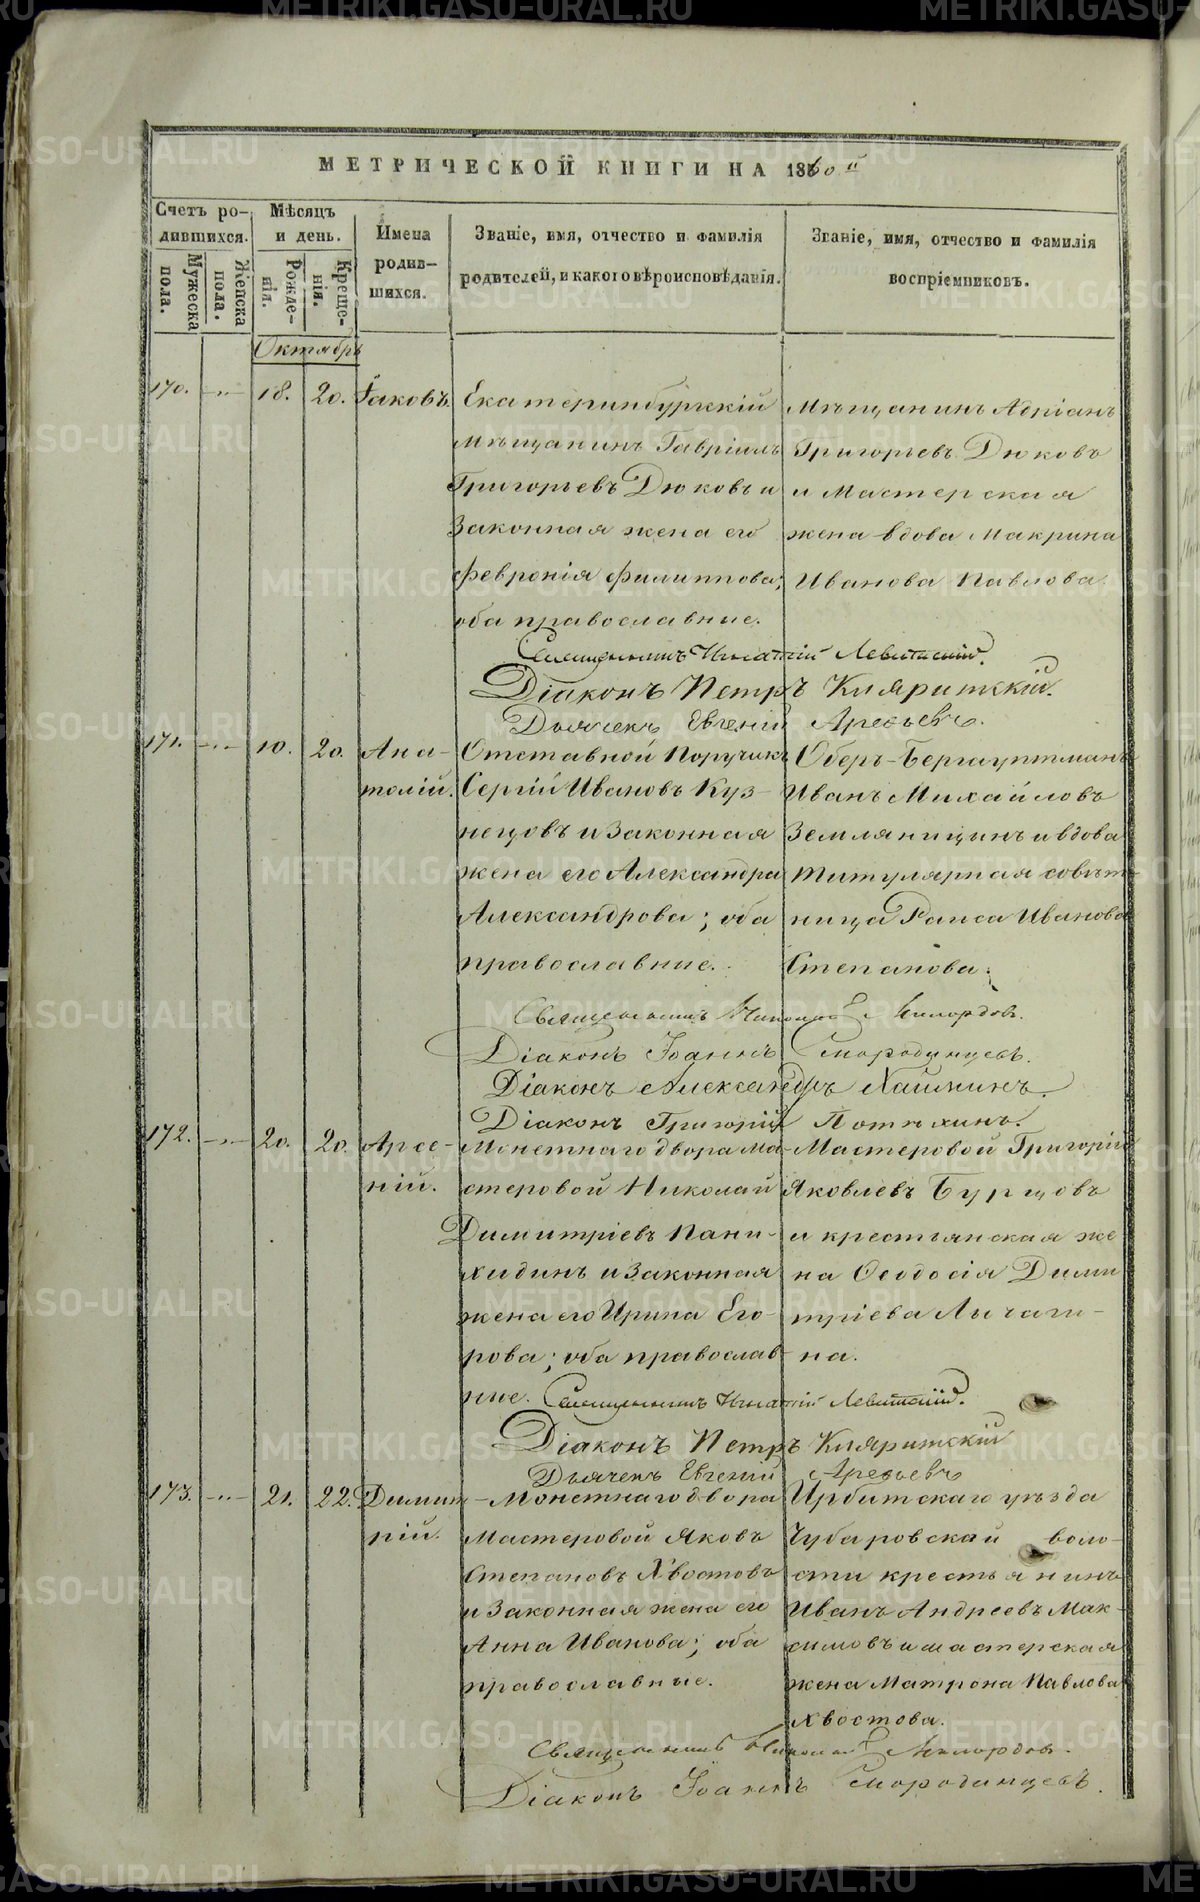 МЕТРИЧЕСКОЙ КНИГИ НА 1860й
Счетъ родившихся.
Мѣсяцъ и день.
Имена родившихся.
Званіе, имя, отчество и фамилія
родителей, и какого вѣроисповѣданія.
Званіе, имя, отчество и фамилія
воспріемниковъ.
Мужеска пола.
Женска пола.
Рожденія.
Крещенія.
Октябрь
170. —"— 18. 20. Іаковъ.
Екатеринбургскій
мѣщанинъ Гавріилъ
Григорьевъ Дюковъ и
законная жена его
Февронія Филиппова;
оба православные.
Мѣщанинъ Адріанъ
Григорьевъ Дюковъ
и мастерская
жена вдова Макрина
Иванова Павлова.
Священникъ Игнатій Левитскій.
Діаконъ Петръ
Дьячекъ Евгеній Арефьевъ.
171. —"— 10. 20. Ана-
толій.
Отставной Поручикъ
Сергій Ивановъ Куз-
нецовъ и законная
жена его Александра
Александрова; оба
православные.
Оберъ-Бергауптманъ
Иванъ Михайловъ
Земляницинъ и вдова
титулярная совѣт-
ница Раиса Иванова
Степанова.
Священникъ Николай
Діаконъ Іоаннъ Смородинцевъ.
Діаконъ Александръ
Діаконъ Григорій
172. —"— 20. 20. Арсе-
ній.
Монетнаго двора ма-
стеровой Николай
Димитріевъ Пани-
хидинъ и законная
жена его Ирина Его-
рова; оба православ-
ные.
Мастеровой Григорій
Яковлевъ Бурцовъ
и крестьянская же
на Ѳеодосія Дими
тріева Личаги-
на.
Священникъ Игнатій Левитскій.
Діаконъ Петръ
Дьячекъ Евгеній Арефьевъ
173. —"— 21. 22. Димит-
рій.
Монетнаго двора
мастеровой Яковъ
Степановъ Хвостовъ
и законная жена его
Анна Иванова; оба
православные.
Ирбитскаго уѣзда
Чубаровской воло-
сти крестьянинъ
Иванъ Андреевъ Мак-
симовъ и мастерская
жена Матрона Павлова
Хвостова.
Священникъ Николай
Діаконъ Іоаннъ Смородинцевъ.
METRIKI.GASO-URAL.RU